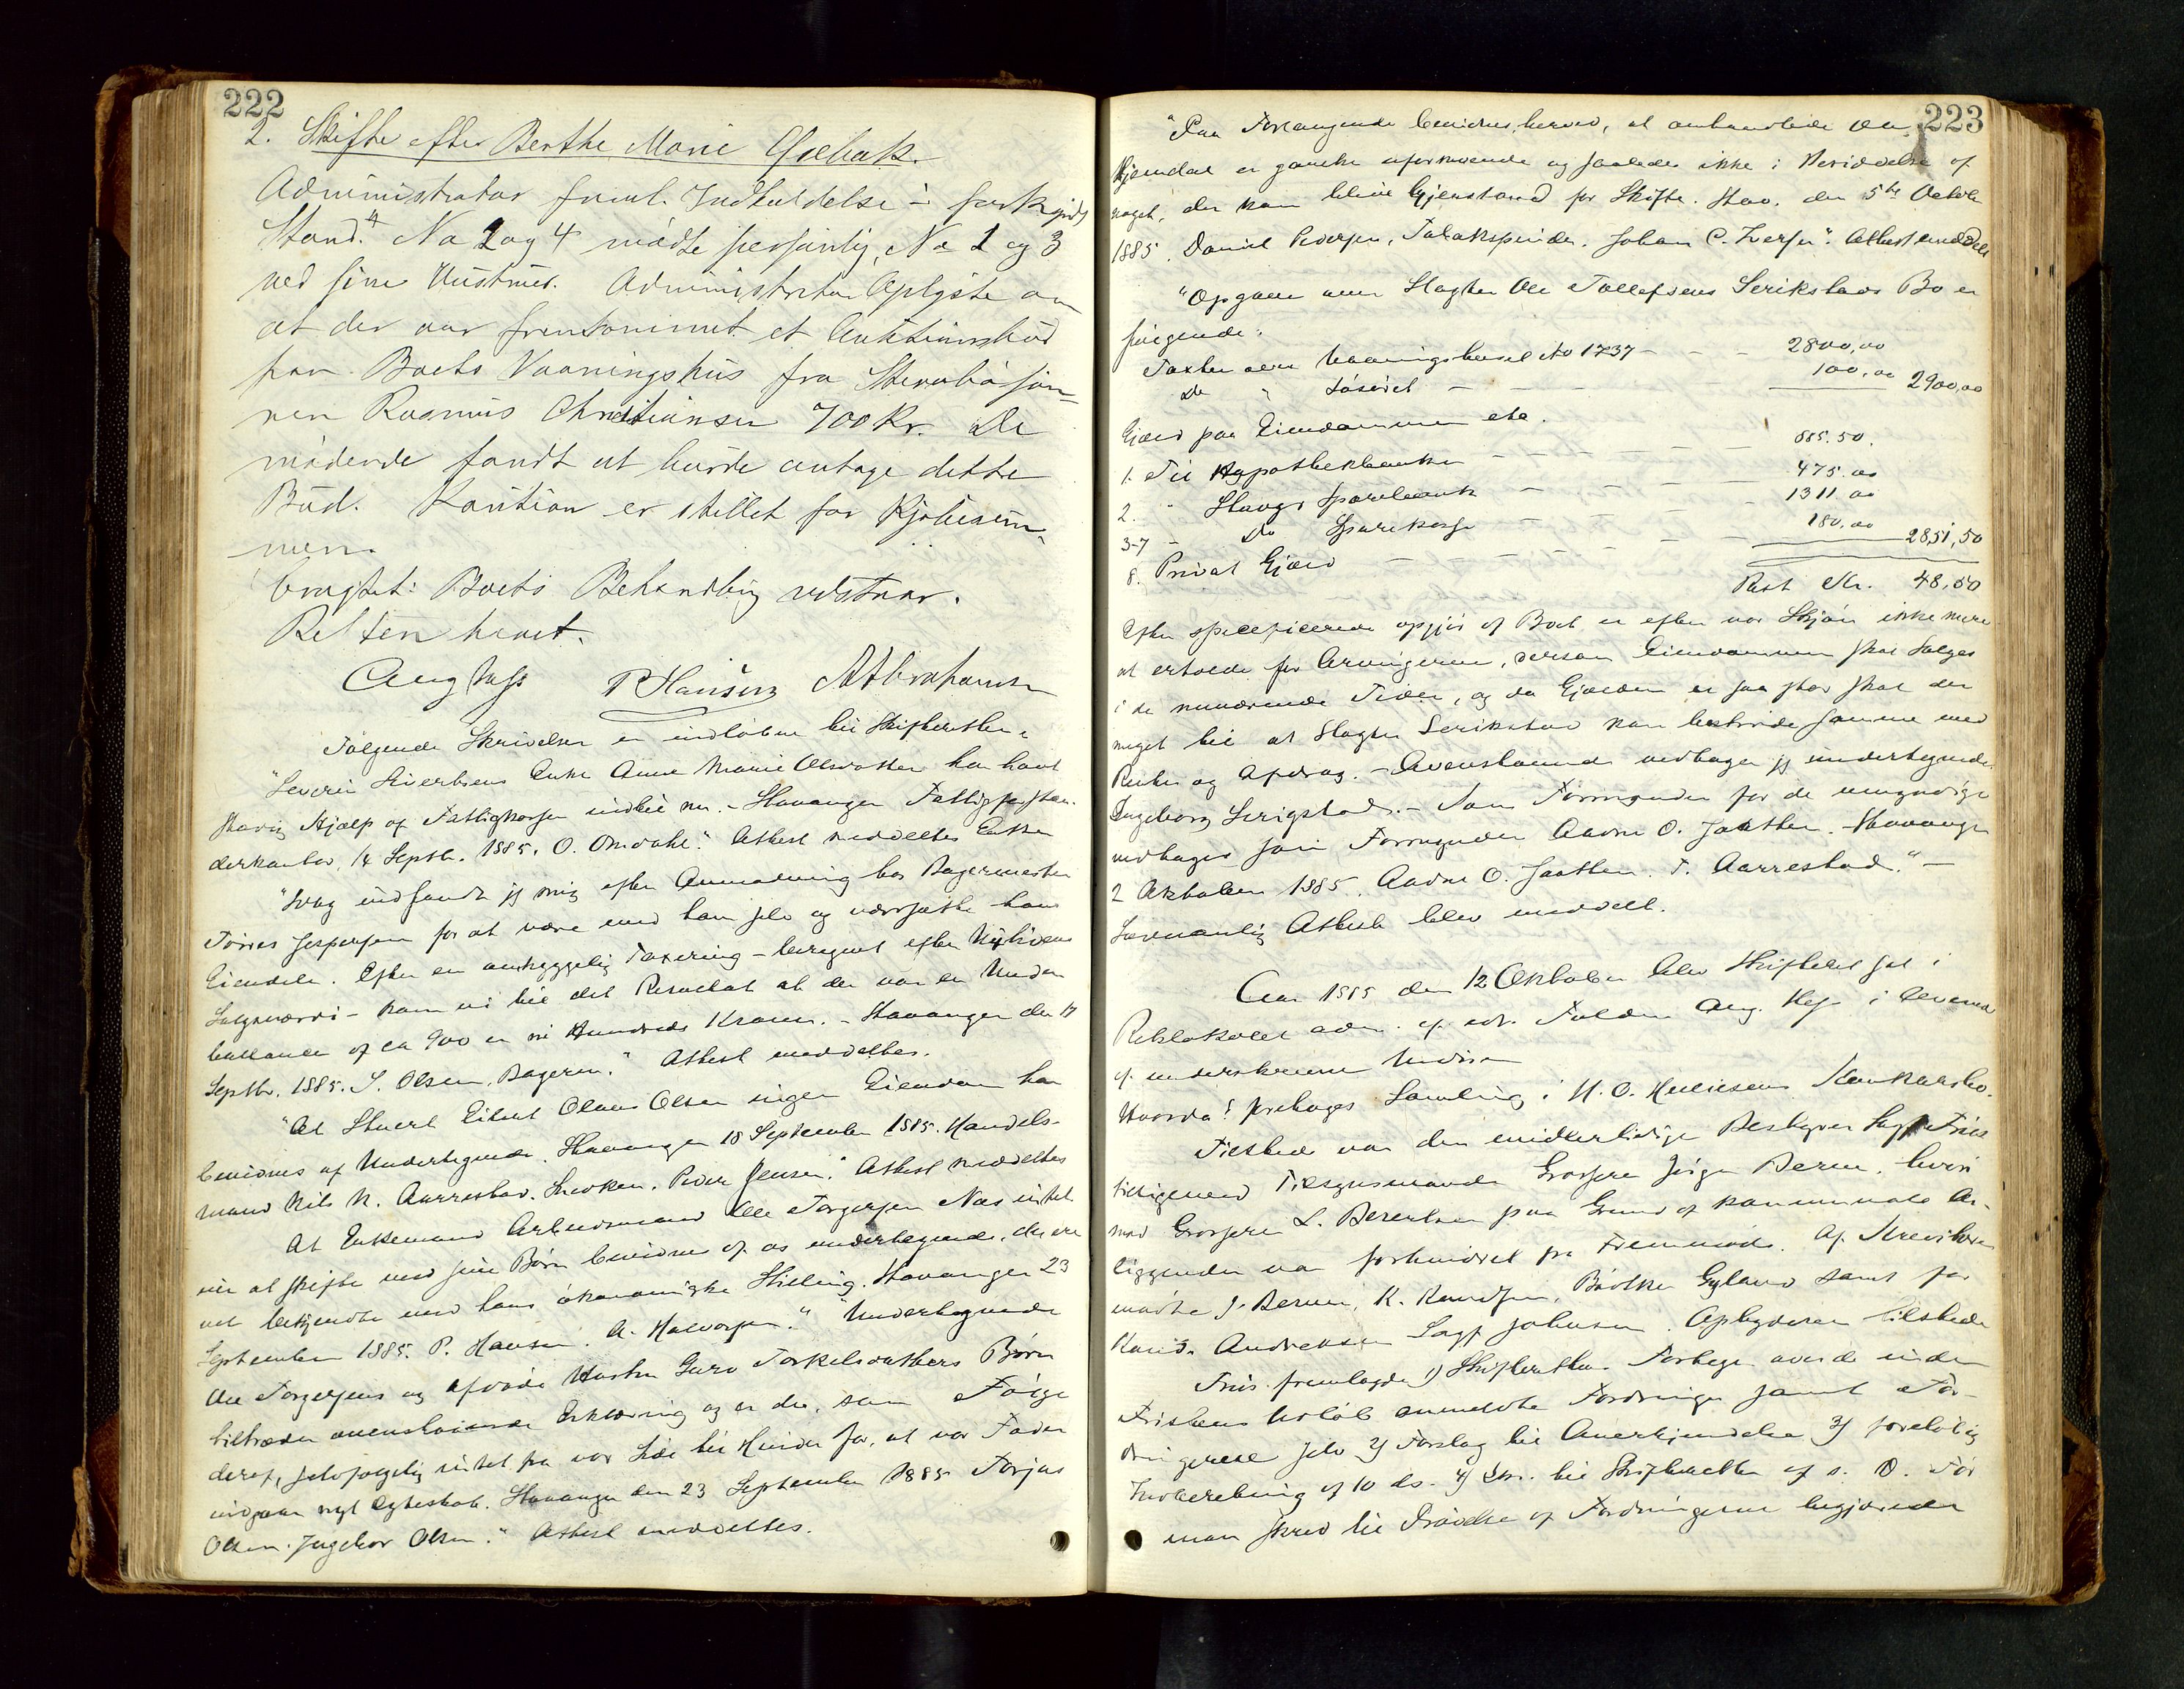 222
2. Skifte efter Berthe Marie
Administrator freml. Indkaldelse i forkyndt
Stand. No 2 og 4 mødte personlig, No 1 og 3
ved sine Hustruer. Administrator oplyste om
at der var fremkommet et Auktionsbud
paa Boets Vaaningshus fra
Rasmus Christiansen 700 Kr. De
mødende fandt at burde antage dette
Bud. Kaution er stillet for Kjøbesum-
men.
Eragtet: Boets Behandling udstaar.
Retten hævet.
Aug Hess P Hansen A Abrahamsen
Følgende Skrivelser er indløbne til Skifteretten:
"Severin Sivertsens Enke Anne Marie Olsdatter har havt
stadig Hjælp af Fattigkassen indtil nu. - Stavanger Fattigforstan-
derkontor, 14 Septb. 1885. O. Omdahl." Attest meddeltes Enken
"Idag indfandt jeg mig efter Anmodning hos Bagermester
Tønnes Jespersen for at være med ham selv og værdsætte hans
Eiendele. Efter en omhyggelig Taxering - beregnet efter Nutidens
Salgsværdi - kom vi til det Resultat at der var en Under-
ballance af ca 900 er ni Hundrede Kroner. - Stavanger den 17
Septbr. 1885. S. Olsen, Bagerm." Attest meddeltes.
"At Stuert Eilert Olaus Olsen ingen Eiendom har
bevidnes af Undertegnede. Stavanger 18 September 1885. Handels-
mand Nils N. Aarrestad. Snedker. Peder Jensen." Attest meddeltes
At Enkemand Arbeidsmand Ole Torgersen Næs intet
eier at skifte med sine Børn bevidnes af os undertegnede, der ere
vel bekjendte med hans økonomiske Stilling. Stavanger 23
September 1885. P. Hansen. A. Halvorsen." "Undertegnede
Ole Torgersens og afdøde Hustru Guro Torkelsdatters Børn
tiltræder ovenstaaende Erklæring og er der, som Følge
deraf, selvfølgelig intet fra vor Side til Hinder for, at vor Fader
indgaar nyt Egteskab. Stavanger den 23 September 1885 Torjus
Olsen. Ingebor Olsen." Attest meddeltes.
223
"Paa Forlangende bevidnes herved, at
er ganske uformuende og saaledes ikke i Besiddelse af
noget, der kan blive Gjenstand for Skifte. Stav. den 5te Octobr
1885. Daniel Pedersen, Tobakspinder. Johan C. Iversen." Attest meddelt
"Opgave over Slagter Ole Tollefsens Serikstads Bo er
følgende:
Taxten over Vaaningshuset No 1737 - - - 2800,00
Do " Løsøret - - - 100,00 2900,00
Gjæld paa Eiendommen etc.
1. Til Hypothekbanken - - - 885.50.
2. " Stavgr Sparebank - - - 475.00
3-7 - Do Sparekasse - - - 1311.00
8. Privat Gjæld - - - 180,00 2851,50
Rest Kr. 48,50
Efter specificerede opgjør af Boet er efter vor Skjøn ikke mere
at erholde for Arvingerne, dersom Eiendommen skal sælges
i de nuværende Tider, og da Gjælden er saa stor skal der
meget til at Slagter Serikstad kan bestride samme med
Renter og Afdrag. - Ovenstaaende vedtager jeg undertegnede
Ingeborg Serigstad. - Som Formynder for de umyndige
vedtages som Formynder Aadne O. Jaatten. - Stavanger
2 Oktober 1885. Aadne O. Jaatten. T. Aarrestad." -
Sædvanlig Attest blev meddelt.
Aar 1885 den 12 Oktober blev Skifteret sat i
Retslokalet adm. af edv. Fuldm. Aug. Hess i Overvær
af underskrevne Vidner
Hvorda! foretoges Samling i H. O. Konkursbo.
Tilstede var den midlertidige Bestyrer Sagf. Friis
tilligemed Tilsynsmanden Grosserer Jørgen Berner, hvori-
mod Grosserer L. Berentsen paa Grund af kommunale An-
liggender var forhindret fra Fremmøde. Af Kreditorer
mødte J. Berner, K. Knudsen, Gyland samt for
Andreassen Sagf Johnsen. Opbyderen tilstede
Friis fremlagde 1) Skifterettens Fortegn. over de inden
Fristens Udløb anmeldte Fordringer samt For-
dringerne selv 2) Forslag til Anerkjendelse 3) foreløbig
Indberetning af 10 ds. 4) Skr. til Skifteretten af s. D. Før
man skred til Prøvelse af Fordringerne begjærede